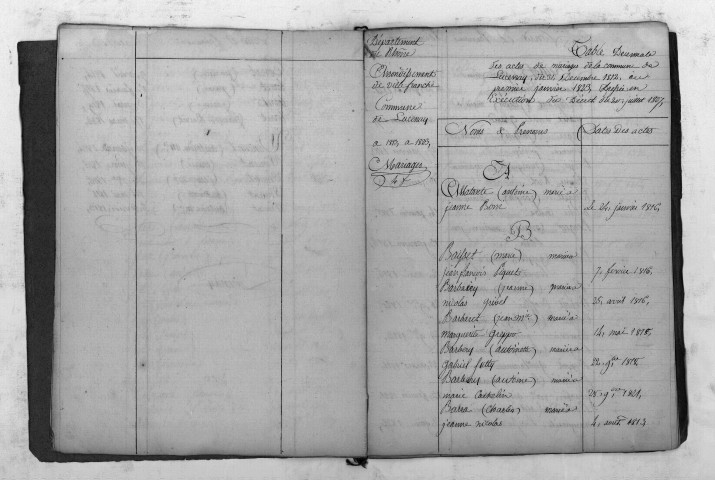 Département
du Rhône
Arrondissement
de villefranche
Commune
de Lucenay
a 1813 a 1823,
Mariages
Table Decennale
des actes de mariages de la commune de
Lucenay du 31 Decembre 1812, au
premier janvier 1823, dressée en
Exécution du Décret du 20 juillet 1807,
Noms & Prenoms
Dates des actes
A
(antoine) marié a
jeanne le 24, janvier 1816,
B
(marie) mariée a
jean françois Piquet 7, fevrier 1816,
mariée a
nicolas 25, avril 1816,
Barberet (jean Mie.) marié a
marguerite 14, mai 1818,
Barbery (antoinette) mariée a
gabriel 22, 9bre 1818,
Barbery (antoine) marié a
marie 28, 9bre 1821,
Barra (Charles) marié a
jeanne nicolas 4, août 1813